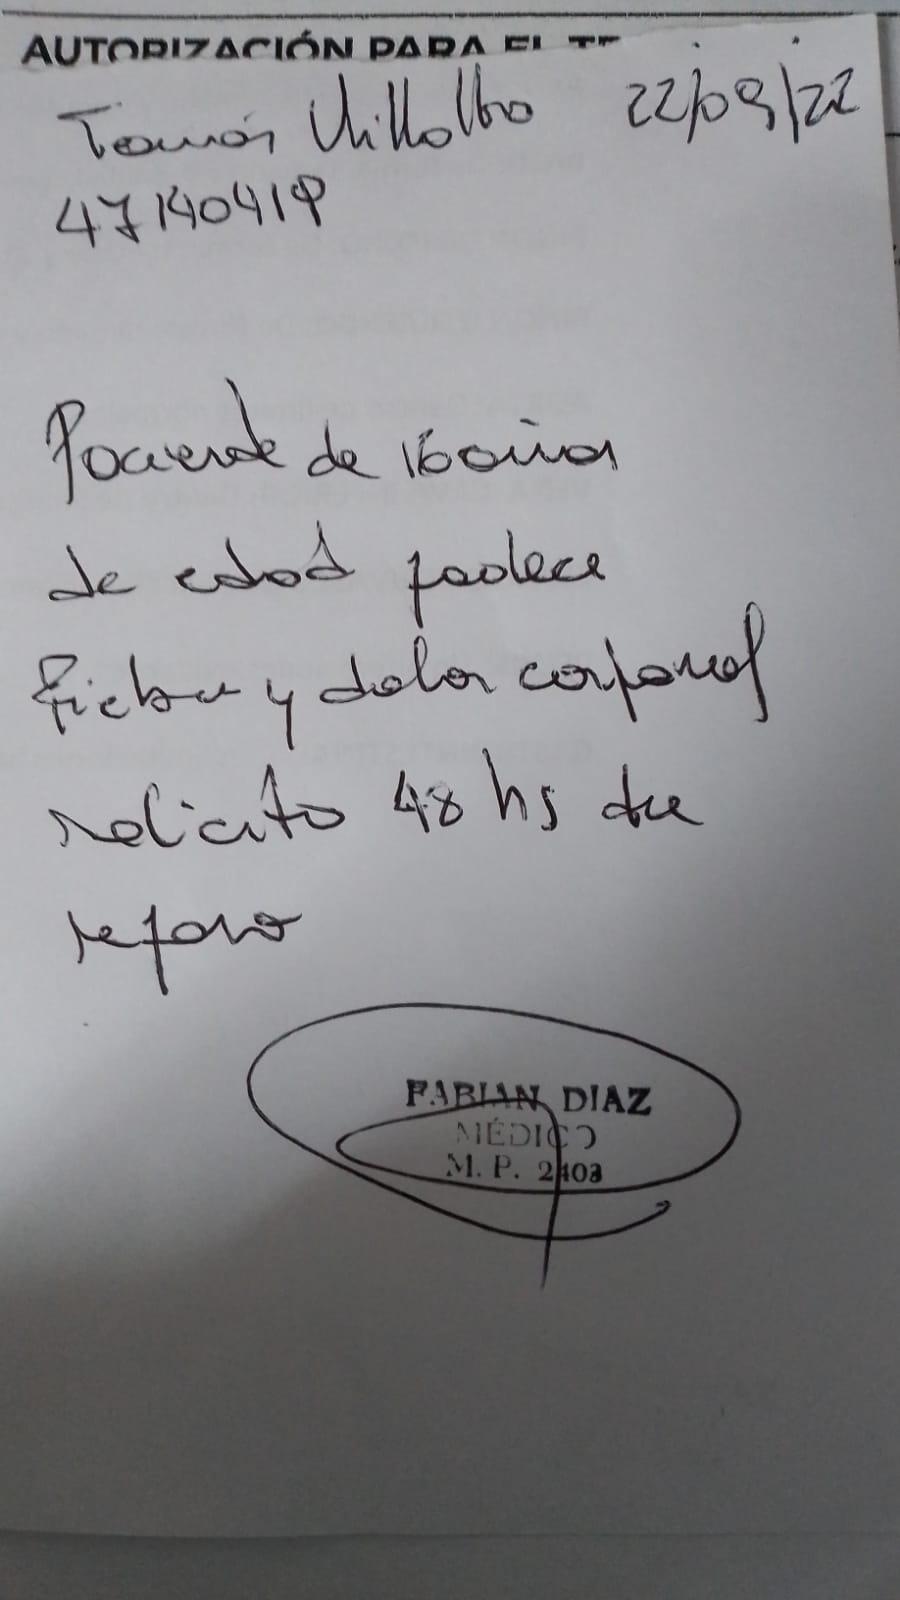 AUTORIZACIÓN PARA EL TE
Tomás Villalba 22/09/22
47140419
Paciente de 16 años
de edad padece
fiebre y dolor corporal
solicito 48 hs de
reposo
FABIAN DIAZ
MÉDICO
M. P. 2403